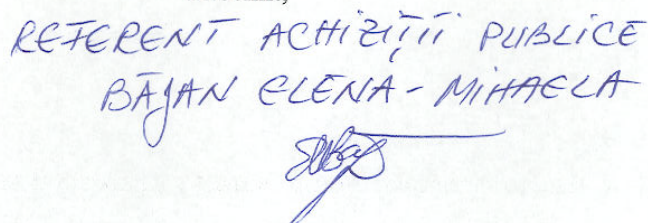 REFERENT ACHIZIȚII PUBLICE
BĂJAN ELENA - MIHAELA